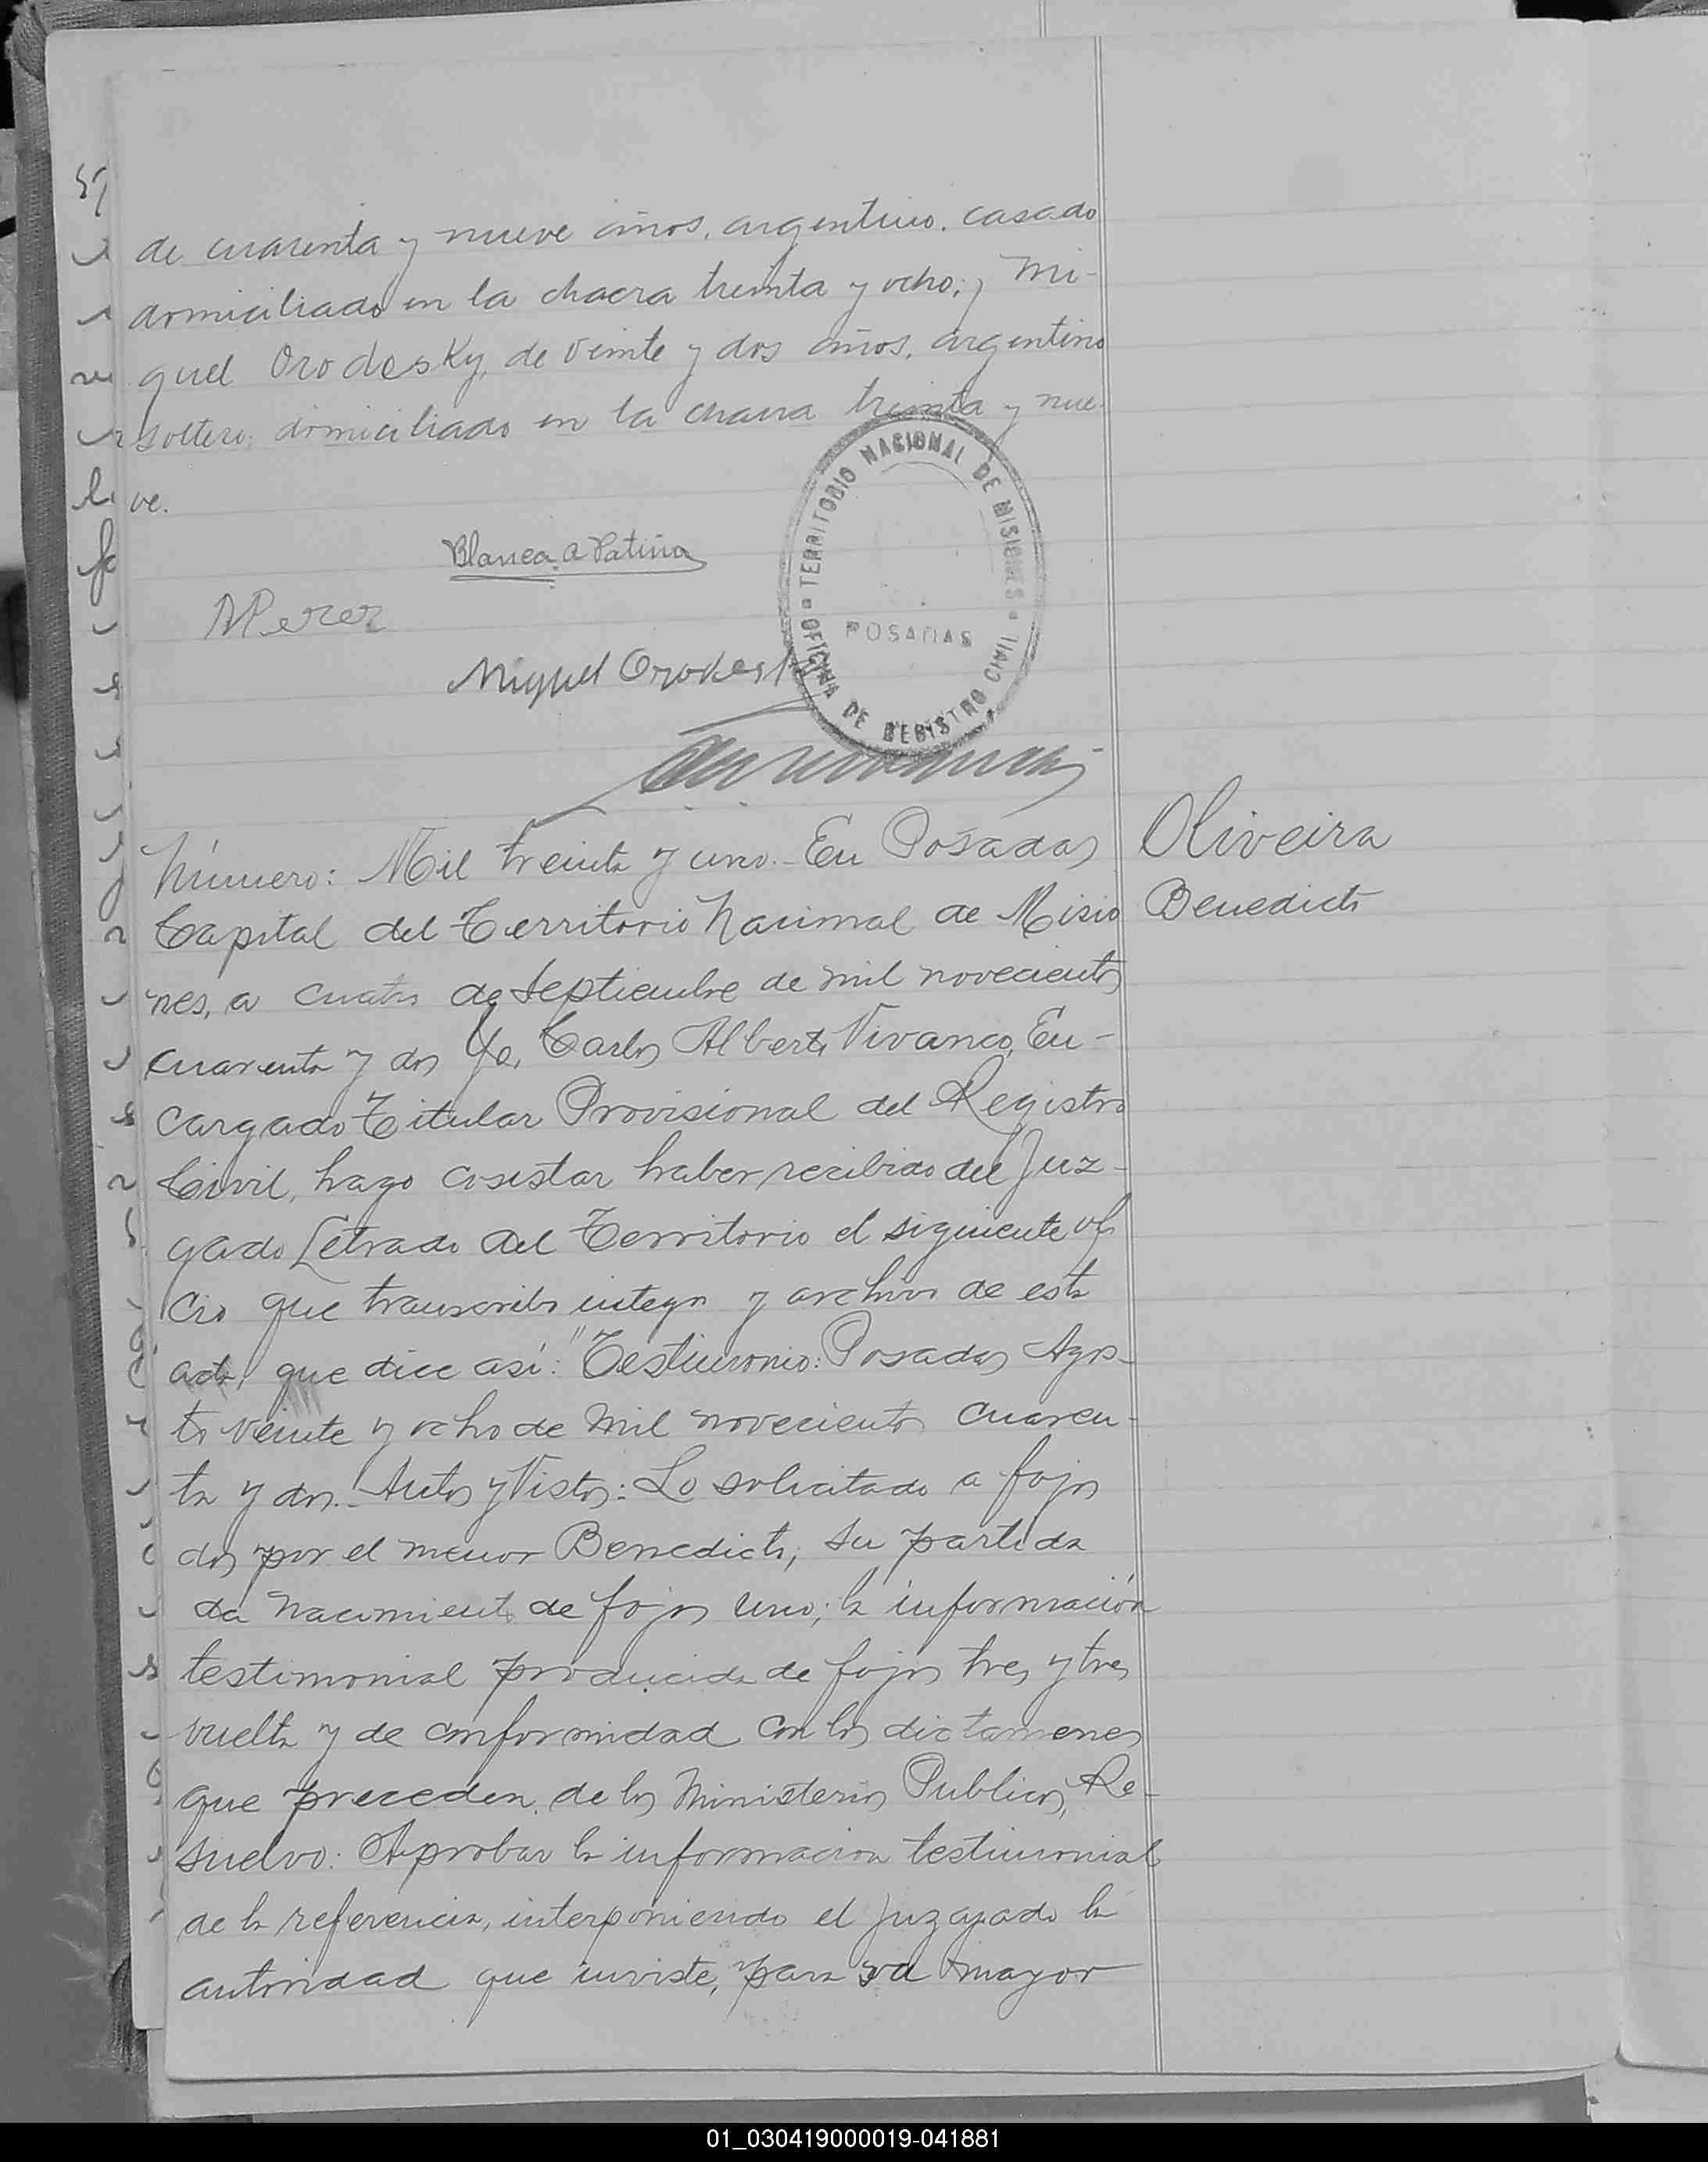 de cuarenta y nueve años, argentino, casado
domiciliado en la chacra treinta y ocho; y Mi-
guel Orodesky, de veinte y dos años, argentino
soltero, domiciliado en la chacra treinta y nue-
ve.
Blanca A Patiño
APerez
Miguel Orodesky
TERRITORIO NACIONAL DE MISIONES
POSADAS
OFICINA DE REGISTRO CIVIL
Número: Mil treinta y uno.- En Posadas
Capital del Territorio Nacional de Misio
nes, a cuatro de Septiembre de mil novecientos
cuarenta y dos Yo, Carlos Alberto Vivanco, En-
cargado Titular Provisional del Registro
Civil, hago constar haber recibido del Juz-
gado Letrado del Territorio el siguiente ofi
cio que transcribo integro y archivo de esta
acta, que dice así: "Testimonio: Posadas Agos-
to veinte y ocho de mil novecientos cuaren-
ta y dos.- Autos y Vistos: Lo solicitado a fojas
dos por el menor Benedicto, su partida
da nacimiento de fojas uno; la información
testimonial producida de fojas tres y tres
vuelta y de conformidad con los dictamenes
que preceden de los Ministerios Publicos, Re-
suelvo: Aprobar la informacion testimonial
de la referencia, interponiendo el Juzgado la
autoridad que inviste, para su mayor
Oliveira
Benedicto
01_030419000019-041881